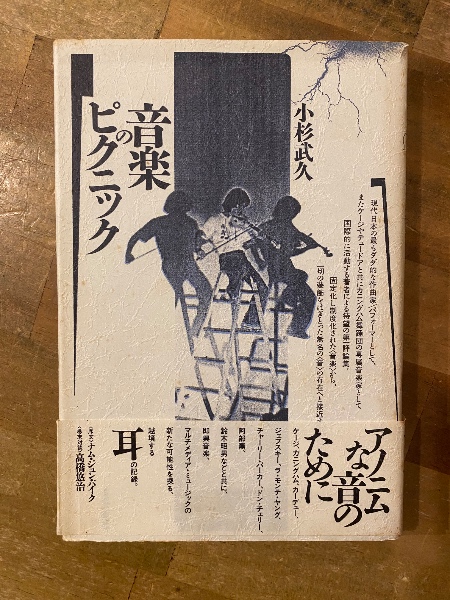 音楽
の
ピクニック
小杉武久
現代日本の最もダダ的な作曲家・パフォーマーとして、
またケージやテュードアと共にカニングハム舞踊団の専属音楽家として
国際的に活動する著者による待望の第一評論集。
固定化し制度化された〈音楽〉から、
一切の虚飾をはぎとった無名の〈音〉の在処へと接近す
アノニム
な音の
ために
ケージ、カニングハム、カーデュー、
ジェフスキー、ラ・モンテ・ヤング、
チャーリー・パーカー、ドン・チェリー、
阿部薫、
鈴木昭男などと共に、
即興音楽、
マルチメディア・ミュージックの
新たな可能性を探る、
越境する
耳の記録。
〈序文〉ナム・ジュン・パイク
〈巻末対談〉高橋悠治